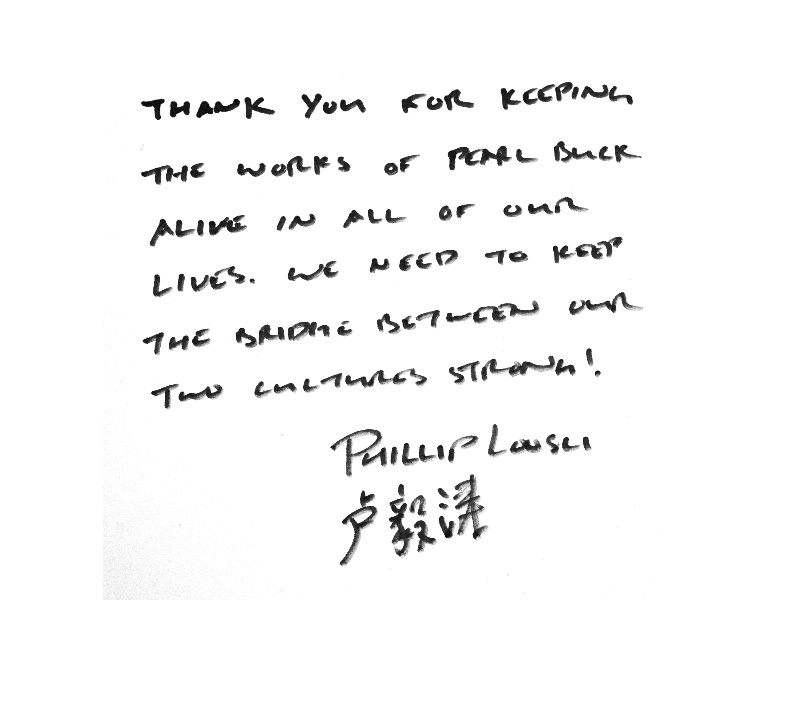 THANK YOU FOR KEEPING
THE WORKS OF PEARL BUCK
ALIVE IN ALL OF OUR
LIVES. WE NEED TO KEEP
THE BRIDGE BETWEEN OUR
TWO CULTURES STRONG!
PHILLIP
卢毅